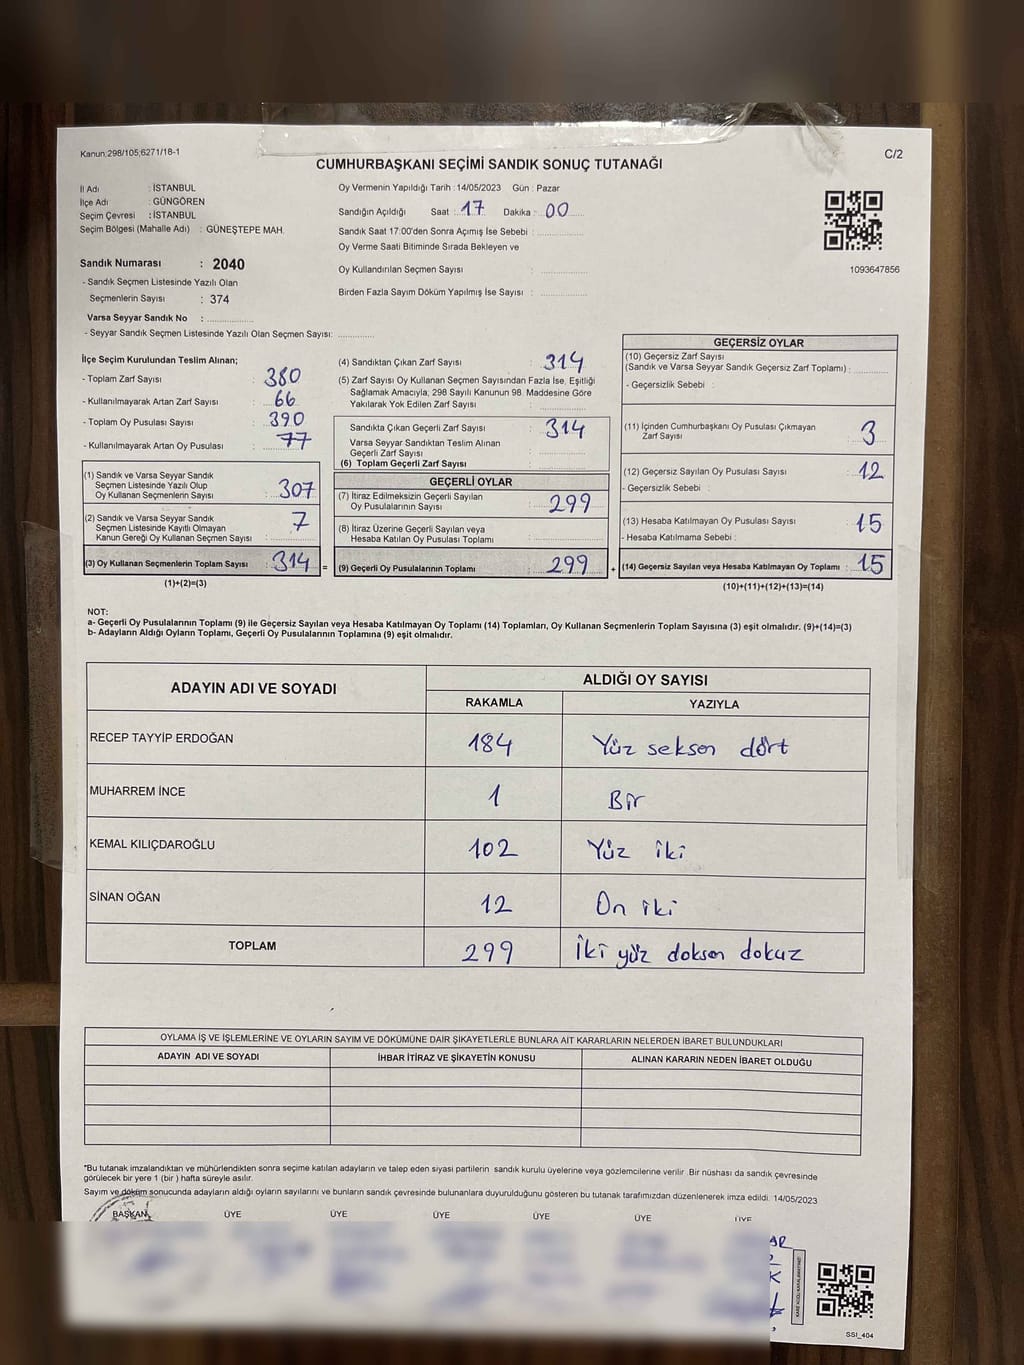 Kanun:298/105;6271/18-1
C/2
CUMHURBAŞKANI SEÇİMİ SANDIK SONUÇ TUTANAĞI
İl Adı : İSTANBUL
İlçe Adı : GÜNGÖREN
Seçim Çevresi : İSTANBUL
Seçim Bölgesi (Mahalle Adı) : GÜNEŞTEPE MAH.
Oy Vermenin Yapıldığı Tarih : 14/05/2023 Gün : Pazar
Sandığın Açıldığı Saat : 17 Dakika : 00
Sandık Saat 17:00'den Sonra Açılmış İse Sebebi :
Oy Verme Saati Bitiminde Sırada Bekleyen ve
Oy Kullandırılan Seçmen Sayısı :
Birden Fazla Sayım Döküm Yapılmış İse Sayısı :
1093647856
Sandık Numarası : 2040
- Sandık Seçmen Listesinde Yazılı Olan
Seçmenlerin Sayısı : 374
Varsa Seyyar Sandık No :
- Seyyar Sandık Seçmen Listesinde Yazılı Olan Seçmen Sayısı:
İlçe Seçim Kurulundan Teslim Alınan;
- Toplam Zarf Sayısı : 380
- Kullanılmayarak Artan Zarf Sayısı : 66
- Toplam Oy Pusulası Sayısı : 390
- Kullanılmayarak Artan Oy Pusulası : 77
(1) Sandık ve Varsa Seyyar Sandık
Seçmen Listesinde Yazılı Olup
Oy Kullanan Seçmenlerin Sayısı : 307
(2) Sandık ve Varsa Seyyar Sandık
Seçmen Listesinde Kayıtlı Olmayan
Kanun Gereği Oy Kullanan Seçmen Sayısı : 7
(3) Oy Kullanan Seçmenlerin Toplam Sayısı : 314 =
(1)+(2)=(3)
(4) Sandıktan Çıkan Zarf Sayısı : 314
(5) Zarf Sayısı Oy Kullanan Seçmen Sayısından Fazla İse, Eşitliği
Sağlamak Amacıyla; 298 Sayılı Kanunun 98. Maddesine Göre
Yakılarak Yok Edilen Zarf Sayısı :
Sandıkta Çıkan Geçerli Zarf Sayısı : 314
Varsa Seyyar Sandıktan Teslim Alınan
Geçerli Zarf Sayısı :
(6) Toplam Geçerli Zarf Sayısı
GEÇERLİ OYLAR
(7) İtiraz Edilmeksizin Geçerli Sayılan
Oy Pusulalarının Sayısı : 299
(8) İtiraz Üzerine Geçerli Sayılan veya
Hesaba Katılan Oy Pusulası Toplamı :
(9) Geçerli Oy Pusulalarının Toplamı : 299 +
GEÇERSİZ OYLAR
(10) Geçersiz Zarf Sayısı
(Sandık ve Varsa Seyyar Sandık Geçersiz Zarf Toplamı) :
- Geçersizlik Sebebi :
(11) İçinden Cumhurbaşkanı Oy Pusulası Çıkmayan
Zarf Sayısı : 3
(12) Geçersiz Sayılan Oy Pusulası Sayısı : 12
- Geçersizlik Sebebi :
(13) Hesaba Katılmayan Oy Pusulası Sayısı : 15
- Hesaba Katılmama Sebebi :
(14) Geçersiz Sayılan veya Hesaba Katılmayan Oy Toplamı : 15
(10)+(11)+(12)+(13)=(14)
NOT:
a- Geçerli Oy Pusulalarının Toplamı (9) ile Geçersiz Sayılan veya Hesaba Katılmayan Oy Toplamı (14) Toplamları, Oy Kullanan Seçmenlerin Toplam Sayısına (3) eşit olmalıdır. (9)+(14)=(3)
b- Adayların Aldığı Oyların Toplamı, Geçerli Oy Pusulalarının Toplamına (9) eşit olmalıdır.
ADAYIN ADI VE SOYADI
ALDIĞI OY SAYISI
RAKAMLA YAZIYLA
RECEP TAYYİP ERDOĞAN 184 Yüz seksen dört
MUHARREM İNCE 1 Bir
KEMAL KILIÇDAROĞLU 102 Yüz iki
SİNAN OĞAN 12 On iki
TOPLAM 299 İki yüz doksan dokuz
OYLAMA İŞ VE İŞLEMLERİNE VE OYLARIN SAYIM VE DÖKÜMÜNE DAİR ŞİKAYETLERLE BUNLARA AİT KARARLARIN NELERDEN İBARET BULUNDUKLARI
ADAYIN ADI VE SOYADI İHBAR İTİRAZ VE ŞİKAYETİN KONUSU ALINAN KARARIN NEDEN İBARET OLDUĞU
*Bu tutanak imzalandıktan ve mühürlendikten sonra seçime katılan adayların ve talep eden siyasi partilerin sandık kurulu üyelerine veya gözlemcilerine verilir. Bir nüshası da sandık çevresinde
görülecek bir yere 1 (bir) hafta süreyle asılır.
Sayım ve döküm sonucunda adayların aldığı oyların sayılarını ve bunların sandık çevresinde bulunanlara duyurulduğunu gösteren bu tutanak tarafımızdan düzenlenerek imza edildi. 14/05/2023
BAŞKAN ÜYE ÜYE ÜYE ÜYE ÜYE ÜYE
SSI_404